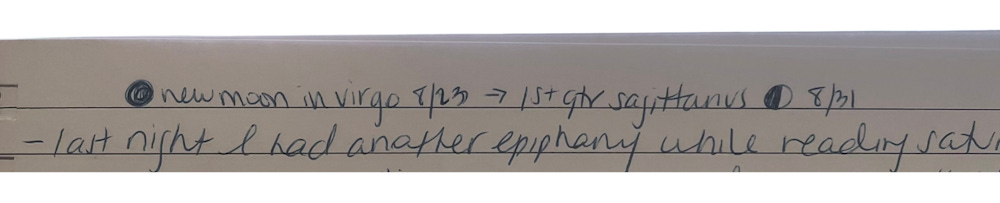 new moon in virgo 8/23 → 1st qtr sagittarius 8/31
- last night I had another epiphany while reading